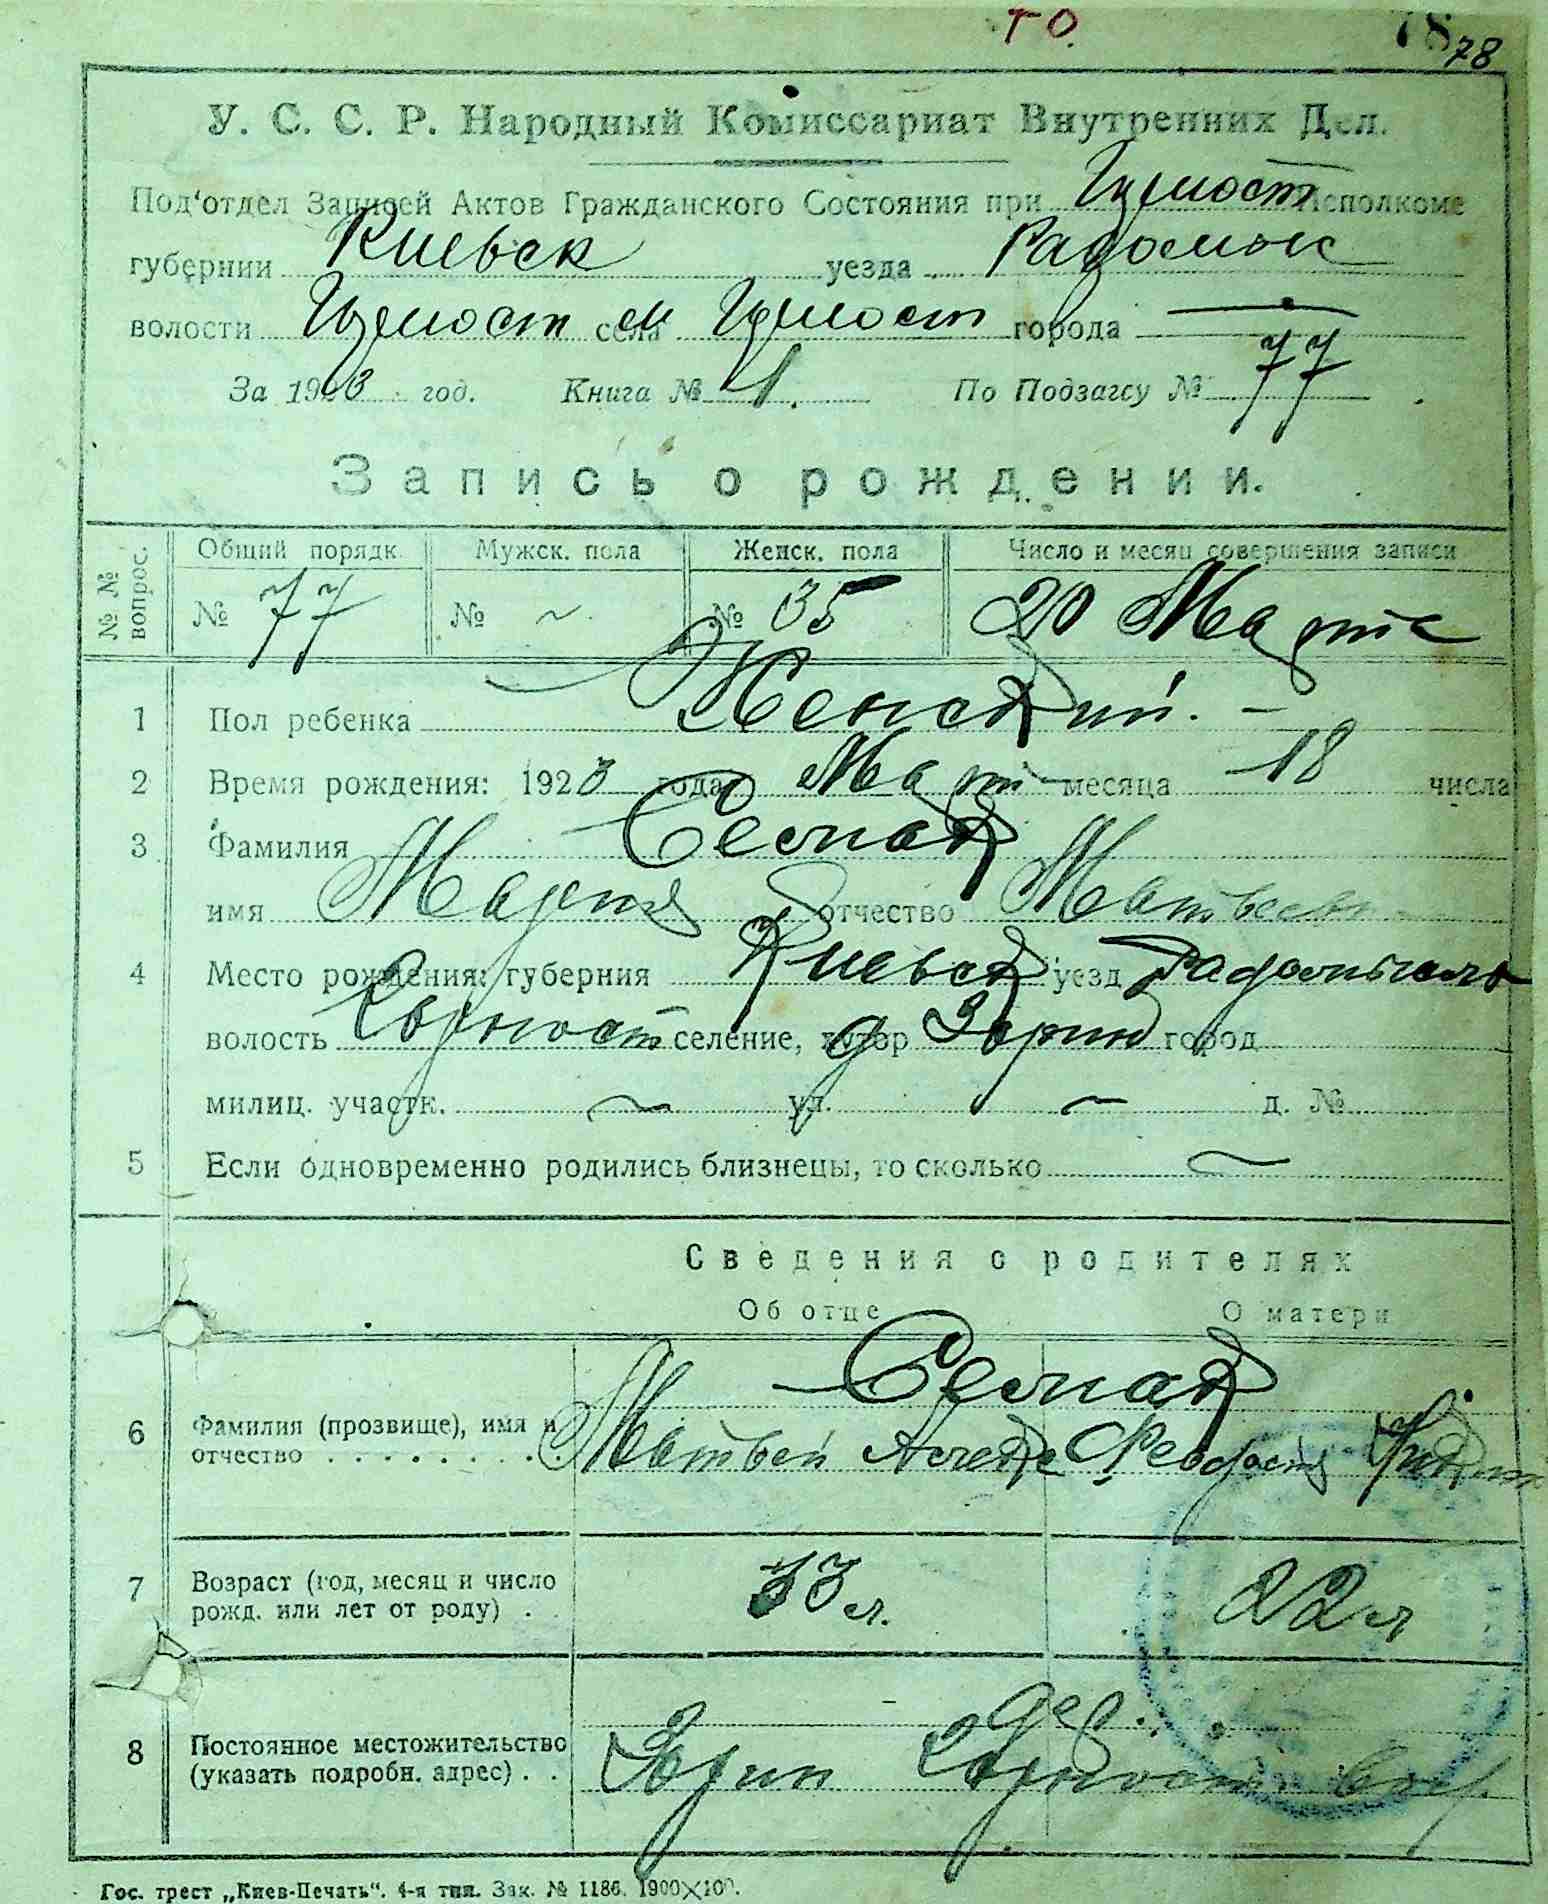 ГО.
78 78
У. С. С. Р. Народный Комиссариат Внутренних Дел.
Под'отдел Записей Актов Гражданского Состояния при Исполкоме
губернии Киевск уезда Радомысл
волости села города —
За 1923 год. Книга № 1. По Подзагсу № 77
Запись о рождении.
№№ вопрос. Общий порядк. Мужск. пола Женск. пола Число и месяц совершения записи
№ 77 № ~ № 35 20 Марта
1 Пол ребенка Женский. –
2 Время рождения: 1923 года Март месяца 18 числа
3 Фамилия Семак
имя Мария отчество Матвеевн
4 Место рождения: губерния Киевск уезд Радомысль
волость селение, хутор д Зорин город
милиц. участк. ~ ул. ~ д. №
5 Если одновременно родились близнецы, то сколько ~
Сведения о родителях
Об отце О матери
Семак
6 Фамилия (прозвище), имя и
отчество . . . . . . . . . Матвей Феодосия
7 Возраст (год, месяц и число
рожд. или лет от роду) . . 33 л. 22 л
дер.
8 Постоянное местожительство
(указать подробн. адрес) . . Зорин вол.
Гос. трест „Киев-Печать". 4-я тип. Зак. № 1186. 1900×100.